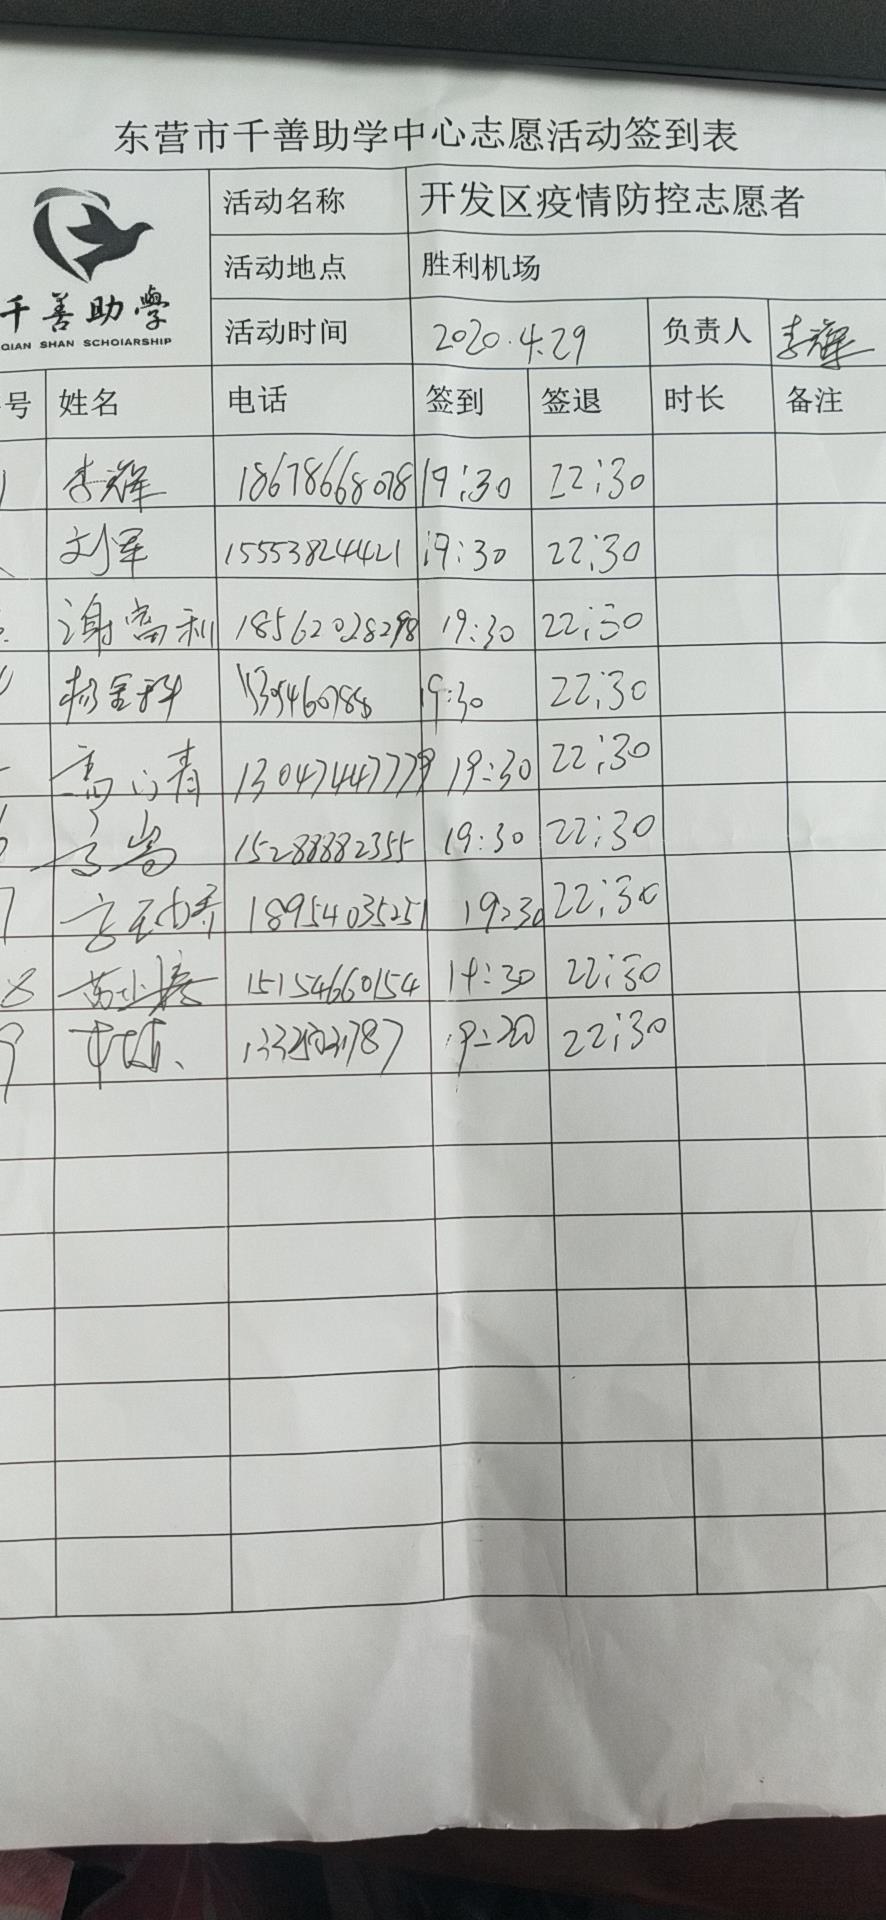 东营市千善助学中心志愿活动签到表
千善助學
QIAN SHAN SCHOIARSHIP
活动名称 开发区疫情防控志愿者
活动地点 胜利机场
活动时间 2020.4.29 负责人 李辉
号 姓名 电话 签到 签退 时长 备注
李辉 18678668078 19:30 22:30
刘军 15553824421 19:30 22:30
谢富利 18562028298 19:30 22:30
杨金科 19:30 22:30
青 13047447779 19:30 22:30
6 15288882355 19:30 22:30
7 18954035251 19:30 22:30
8 15154660154 19:30 22:30
9 22:30